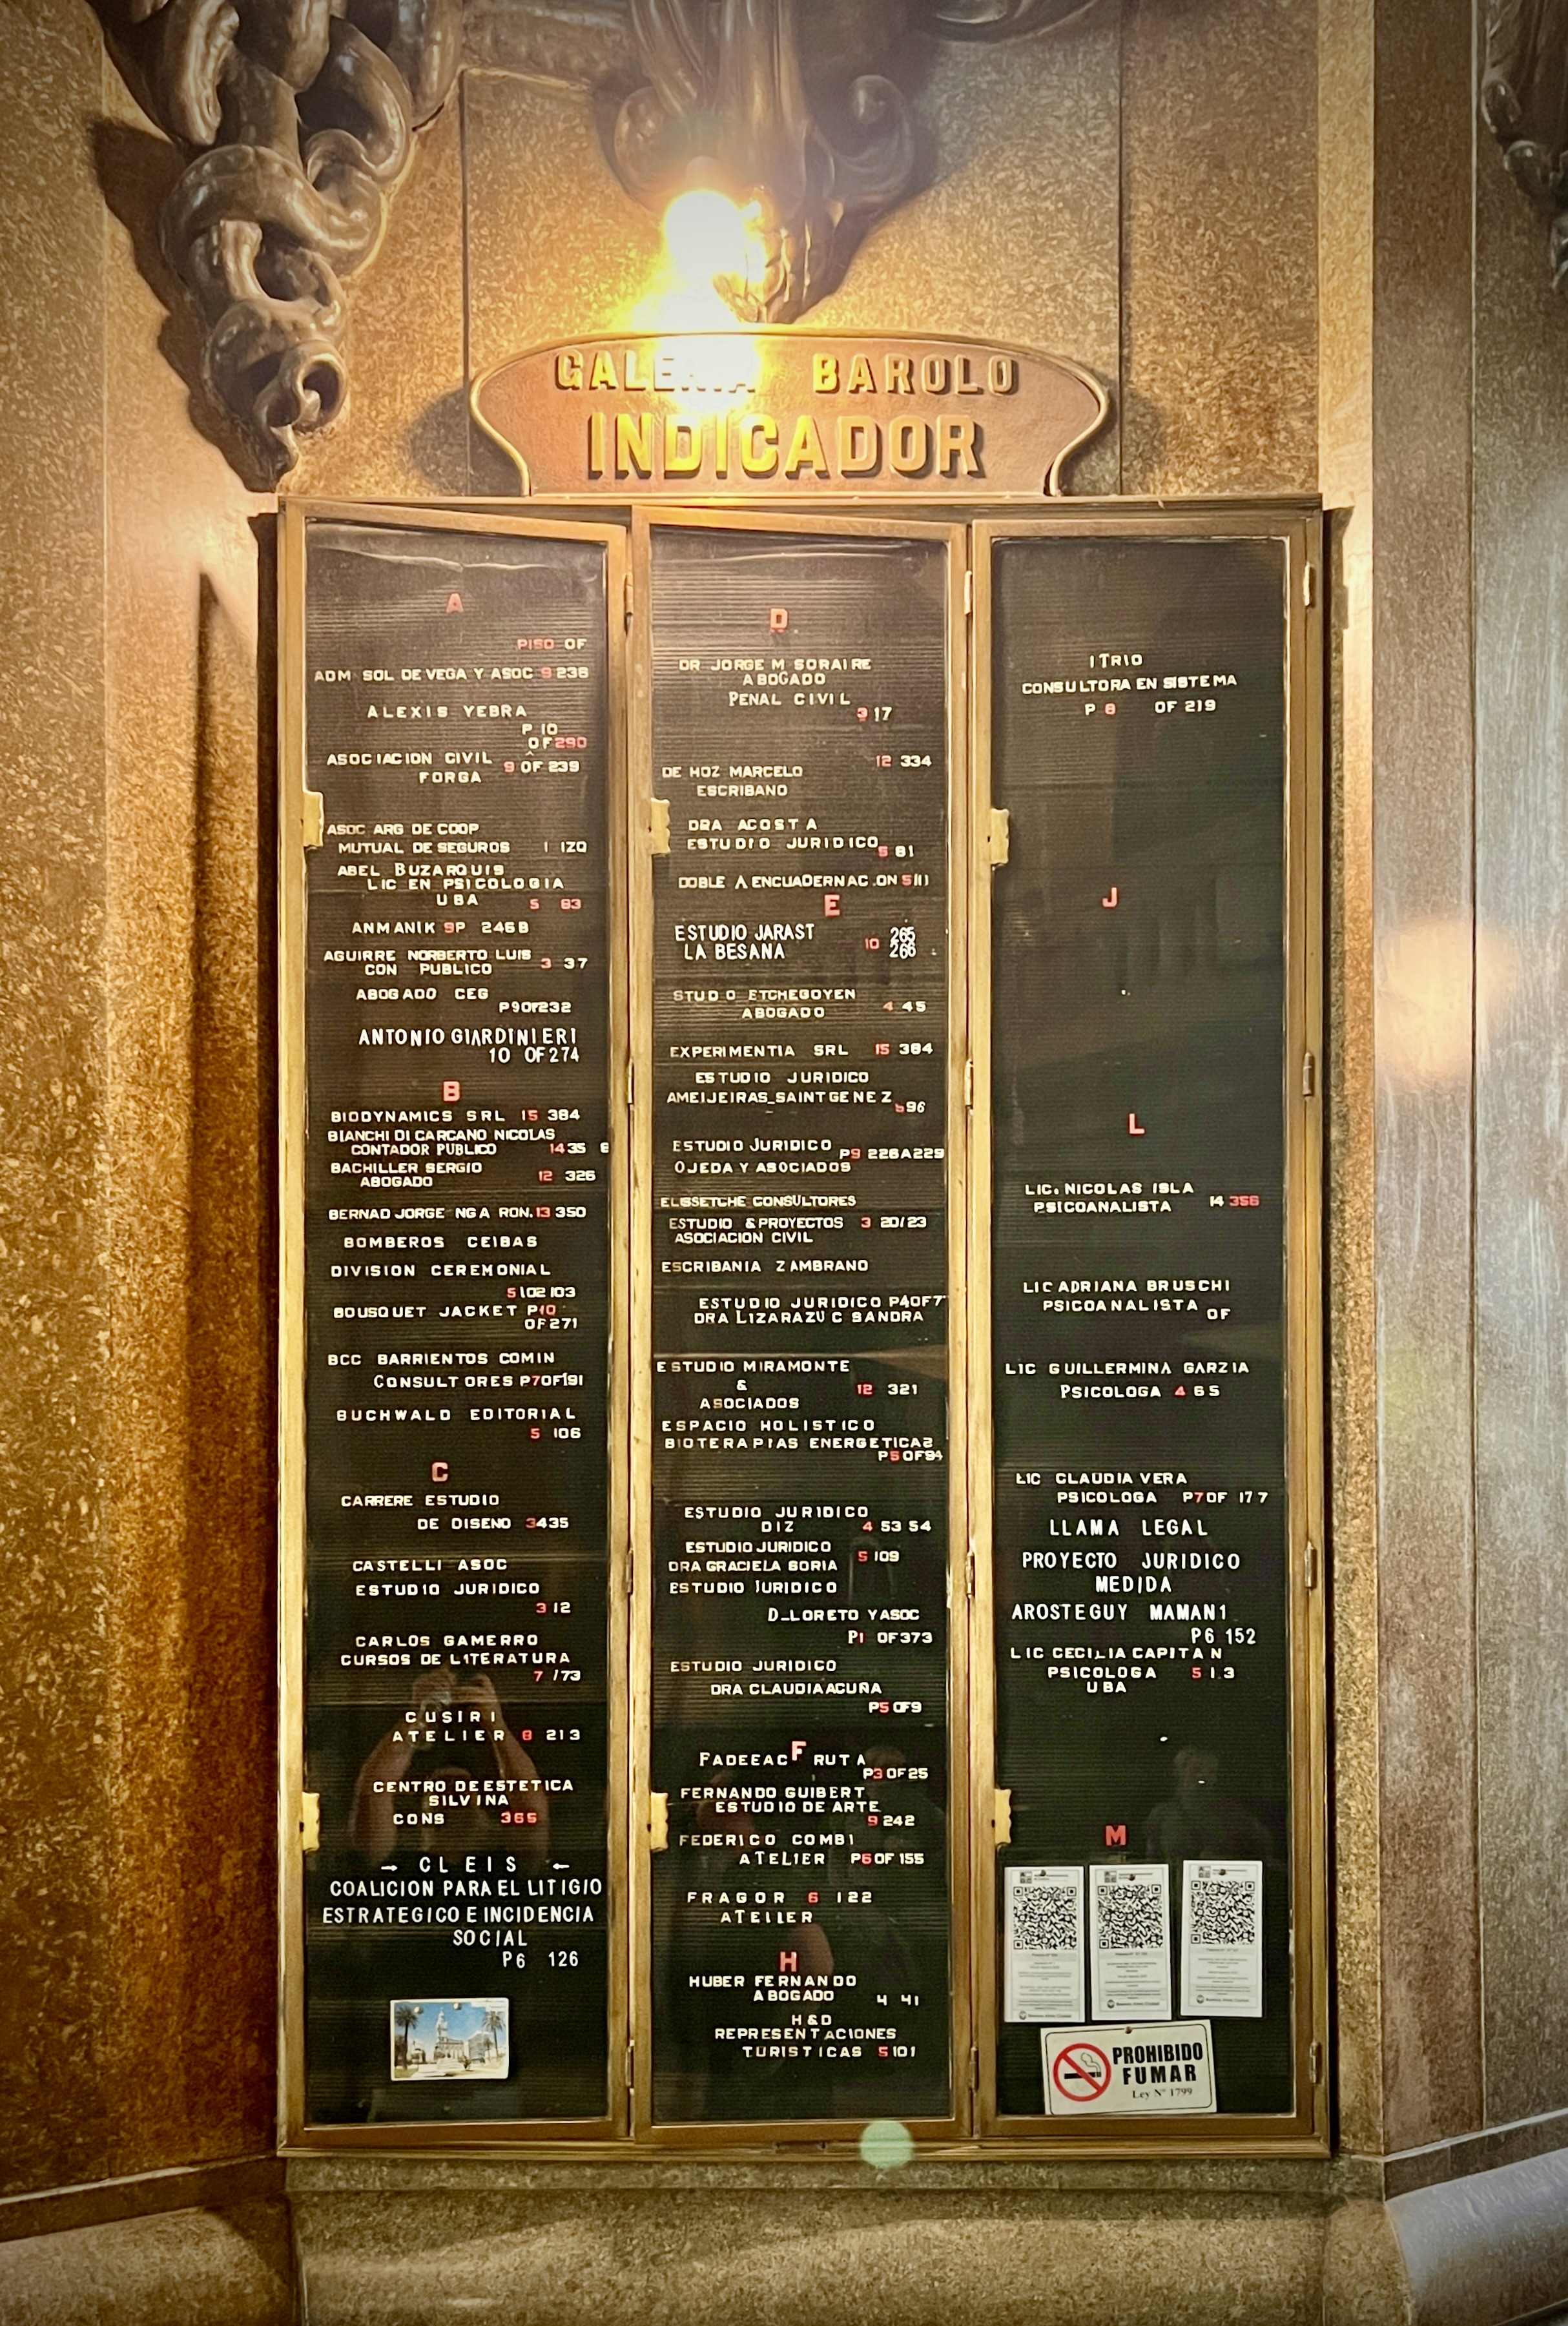 GALERIA BAROLO
INDICADOR
A
PISO OF
ADM SOL DE VEGA Y ASOC 9 238
ALEXIS YEBRA
P 10
OF 290
ASOCIACION CIVIL 9 OF 239
FORGA
ASOC ARG DE COOP
MUTUAL DE SEGUROS 1 IZQ
ABEL BUZARQUIS
LIC EN PSICOLOGIA
UBA 5 83
ANMANIK 9P 246B
AGUIRRE NORBERTO LUIS 3 37
CON PUBLICO
ABOGADO CEG
P9OF232
ANTONIO GIARDINIERI
10 OF274
B
BIODYNAMICS SRL 15 384
BIANCHI DI CARCANO NICOLAS
CONTADOR PUBLICO 14 35
BACHILLER SERGIO 12 326
ABOGADO
BERNAD JORGE NG A RON. 13 350
BOMBEROS CEIBAS
DIVISION CEREMONIAL
5 102 103
BOUSQUET JACKET P10
OF 271
BCC BARRIENTOS COMIN
CONSULTORES P7OF191
BUCHWALD EDITORIAL
5 106
C
CARRERE ESTUDIO
DE DISENO 3435
CASTELLI ASOC
ESTUDIO JURIDICO
3 12
CARLOS GAMERRO
CURSOS DE LITERATURA
7 173
CUSIRI
ATELIER 8 213
CENTRO DE ESTETICA
SILVINA
CONS 365
→ CLEIS ←
COALICION PARA EL LITIGIO
ESTRATEGICO E INCIDENCIA
SOCIAL
P6 126
D
DR JORGE M SORAIRE
ABOGADO
PENAL CIVIL
3 17
12 334
DE HOZ MARCELO
ESCRIBANO
DRA ACOSTA
ESTUDIO JURIDICO 5 81
DOBLE A ENCUADERNAC ON 5 111
E
ESTUDIO JARAST 265
LA BESANA 10 266
STUD O ETCHEGOYEN
ABOGADO 4 45
EXPERIMENTIA SRL 15 384
ESTUDIO JURIDICO
AMEIJEIRAS_SAINTGENEZ 96
ESTUDIO JURIDICO P9 226A229
OJEDA Y ASOCIADOS
ELISSETCHE CONSULTORES
ESTUDIO & PROYECTOS 3 20/23
ASOCIACION CIVIL
ESCRIBANIA ZAMBRANO
ESTUDIO JURIDICO P4OF7
DRA LIZARAZU C SANDRA
ESTUDIO MIRAMONTE
& 12 321
ASOCIADOS
ESPACIO HOLISTICO
BIOTERAPIAS ENERGETICAS
P5OF94
ESTUDIO JURIDICO
DIZ 4 53 54
ESTUDIO JURIDICO
DRA GRACIELA SORIA 5 109
ESTUDIO JURIDICO
D_LORETO YASOC
P1 OF373
ESTUDIO JURIDICO
DRA CLAUDIA ACUÑA
P5 OF9
F
FADEEAC RUTA
P3 OF25
FERNANDO GUIBERT
ESTUDIO DE ARTE
9 242
FEDERICO COMBI
ATELIER P6 OF 155
FRAGOR 6 122
ATELIER
H
HUBER FERNANDO
ABOGADO 4 41
H&D
REPRESENTACIONES
TURISTICAS 5 101
ITRIO
CONSULTORA EN SISTEMA
P 8 OF 219
J
L
LIC. NICOLAS ISLA
PSICOANALISTA 14 356
LIC ADRIANA BRUSCHI
PSICOANALISTA OF
LIC GUILLERMINA GARZIA
PSICOLOGA 4 65
LIC CLAUDIA VERA
PSICOLOGA P7OF 177
LLAMA LEGAL
PROYECTO JURIDICO
MEDIDA
AROSTEGUY MAMANI
P6 152
LIC CECILIA CAPITAN
PSICOLOGA 5 1.3
UBA
M
PROHIBIDO
FUMAR
Ley N° 1799